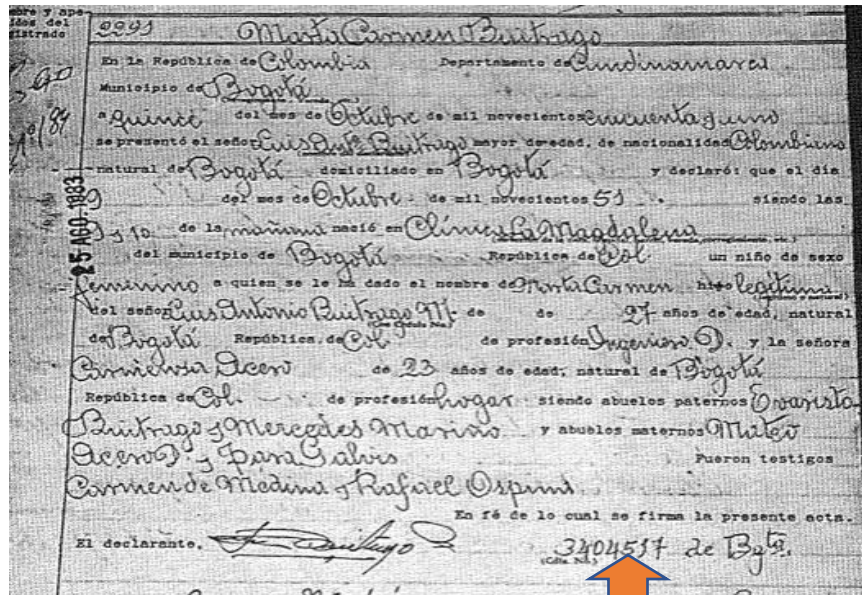 2291 Marta Carmen Buitrago
En la República de Colombia Departamento de Cundinamarca
Municipio de Bogotá
a quince del mes de Octubre de mil novecientos cincuenta y uno
se presentó el señor Luis Antº Buitrago mayor de edad, de nacionalidad Colombiano
natural de Bogotá domiciliado en Bogotá y declaró: que el día
9 del mes de Octubre de mil novecientos 51 siendo las
9 y 10 de la mañana nació en Clínica La Magdalena
del municipio de Bogotá República de Col. un niño de sexo
femenino a quien se le ha dado el nombre de Marta Carmen hijo legítima
del señor Luis Antonio Buitrago M. de de 27 años de edad, natural
de Bogotá República de Col. de profesión Ingeniero y la señora
Acero de 23 años de edad, natural de Bogotá
República de Col. de profesión hogar siendo abuelos paternos Evaristo
Buitrago y Mercedes Mariño y abuelos maternos Mateo
Acero y Galvis Fueron testigos
Carmen de Medina y Rafael Ospina
En fé de lo cual se firma la presente acta.
El declarante, 3404517 de Bgtá.
(Cdla. No.)
25 AGO. 1883